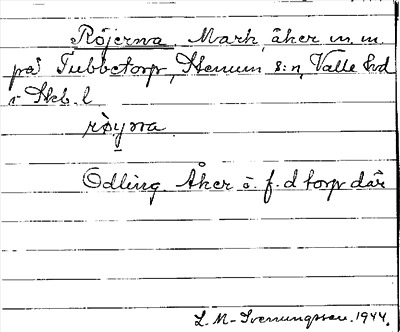 Röjerna. Mark, åker m. m.
på Tubbetorp, Stenum s:n, Valle hd
i Skb. l.
röyna
Odling. Åker å f. d torp där
L. M. Svenungsson. 1944.